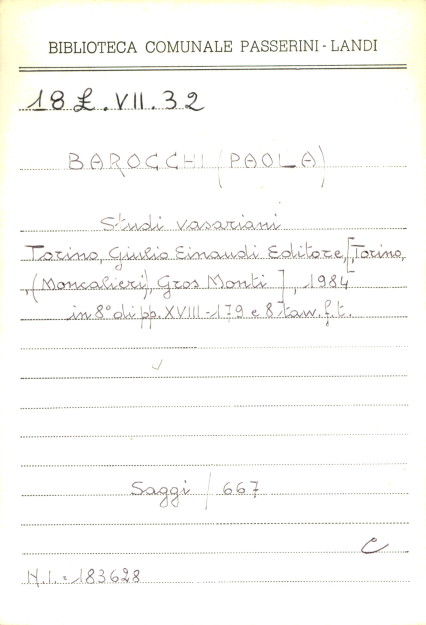 BIBLIOTECA COMUNALE PASSERINI - LANDI
18 £.VII.32
BAROCCHI (PAOLA)
Studi vasariani
Torino, Giulio Einaudi Editore, [Torino,
(Moncalieri), Gros Monti], 1984
in 8° di pp. XVIII-179 e 87 tav. f.t.
Saggi / 667
C
N.I. = 183628